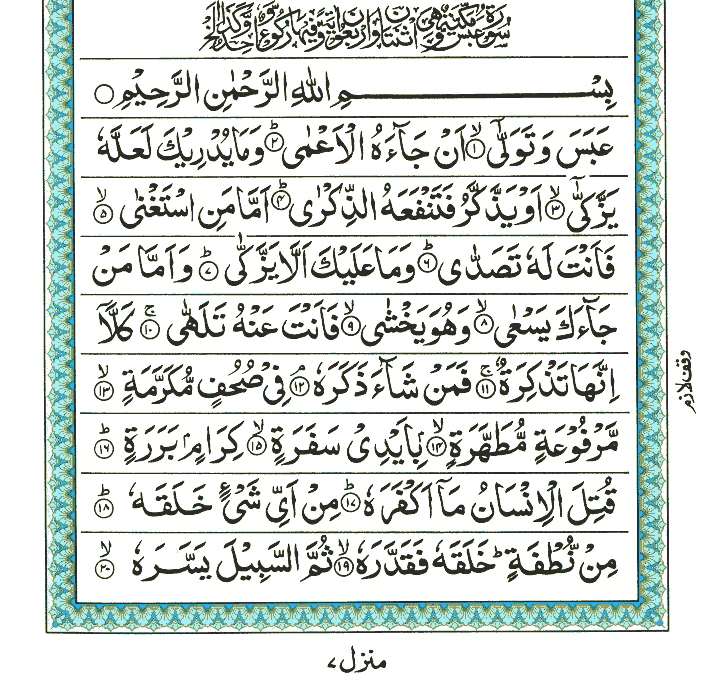 سُوْرَةُ عَبَسَ مَكِّيَّةٌ وَّهِيَ اثْنَتَانِ وَاَرْبَعُوْنَ اٰيَةً وَّفِيْهَا رُكُوْعٌ وَّاحِدٌ
بِسْمِ اللهِ الرَّحْمٰنِ الرَّحِيْمِ ○
عَبَسَ وَتَوَلّٰىٓ ۙ﴿۱﴾ اَنْ جَآءَهُ الْاَعْمٰى ؕ﴿۲﴾ وَمَا يُدْرِيْكَ لَعَلَّهٗ
يَزَّكّٰىٓ ۙ﴿۳﴾ اَوْ يَذَّكَّرُ فَتَنْفَعَهُ الذِّكْرٰى ؕ﴿۴﴾ اَمَّا مَنِ اسْتَغْنٰى ۙ﴿۵﴾
فَاَنْتَ لَهٗ تَصَدّٰى ؕ﴿۶﴾ وَمَا عَلَيْكَ اَلَّا يَزَّكّٰى ؕ﴿۷﴾ وَاَمَّا مَنْ
جَآءَكَ يَسْعٰى ۙ﴿۸﴾ وَهُوَ يَخْشٰى ۙ﴿۹﴾ فَاَنْتَ عَنْهُ تَلَهّٰى ۚ﴿۱۰﴾ كَلَّاۤ
اِنَّهَا تَذْكِرَةٌ ۚ﴿۱۱﴾ فَمَنْ شَآءَ ذَكَرَهٗ ۘ﴿۱۲﴾ فِيْ صُحُفٍ مُّكَرَّمَةٍ ۙ﴿۱۳﴾
وقف لازم
مَّرْفُوْعَةٍ مُّطَهَّرَةٍۭ ۙ﴿۱۴﴾ بِاَيْدِيْ سَفَرَةٍ ۙ﴿۱۵﴾ كِرَامٍۭ بَرَرَةٍ ؕ﴿۱۶﴾
قُتِلَ الْاِنْسَانُ مَآ اَكْفَرَهٗ ؕ﴿۱۷﴾ مِنْ اَيِّ شَيْءٍ خَلَقَهٗ ؕ﴿۱۸﴾
مِنْ نُّطْفَةٍ ؕ خَلَقَهٗ فَقَدَّرَهٗ ۙ﴿۱۹﴾ ثُمَّ السَّبِيْلَ يَسَّرَهٗ ۙ﴿۲۰﴾
منزل ۷